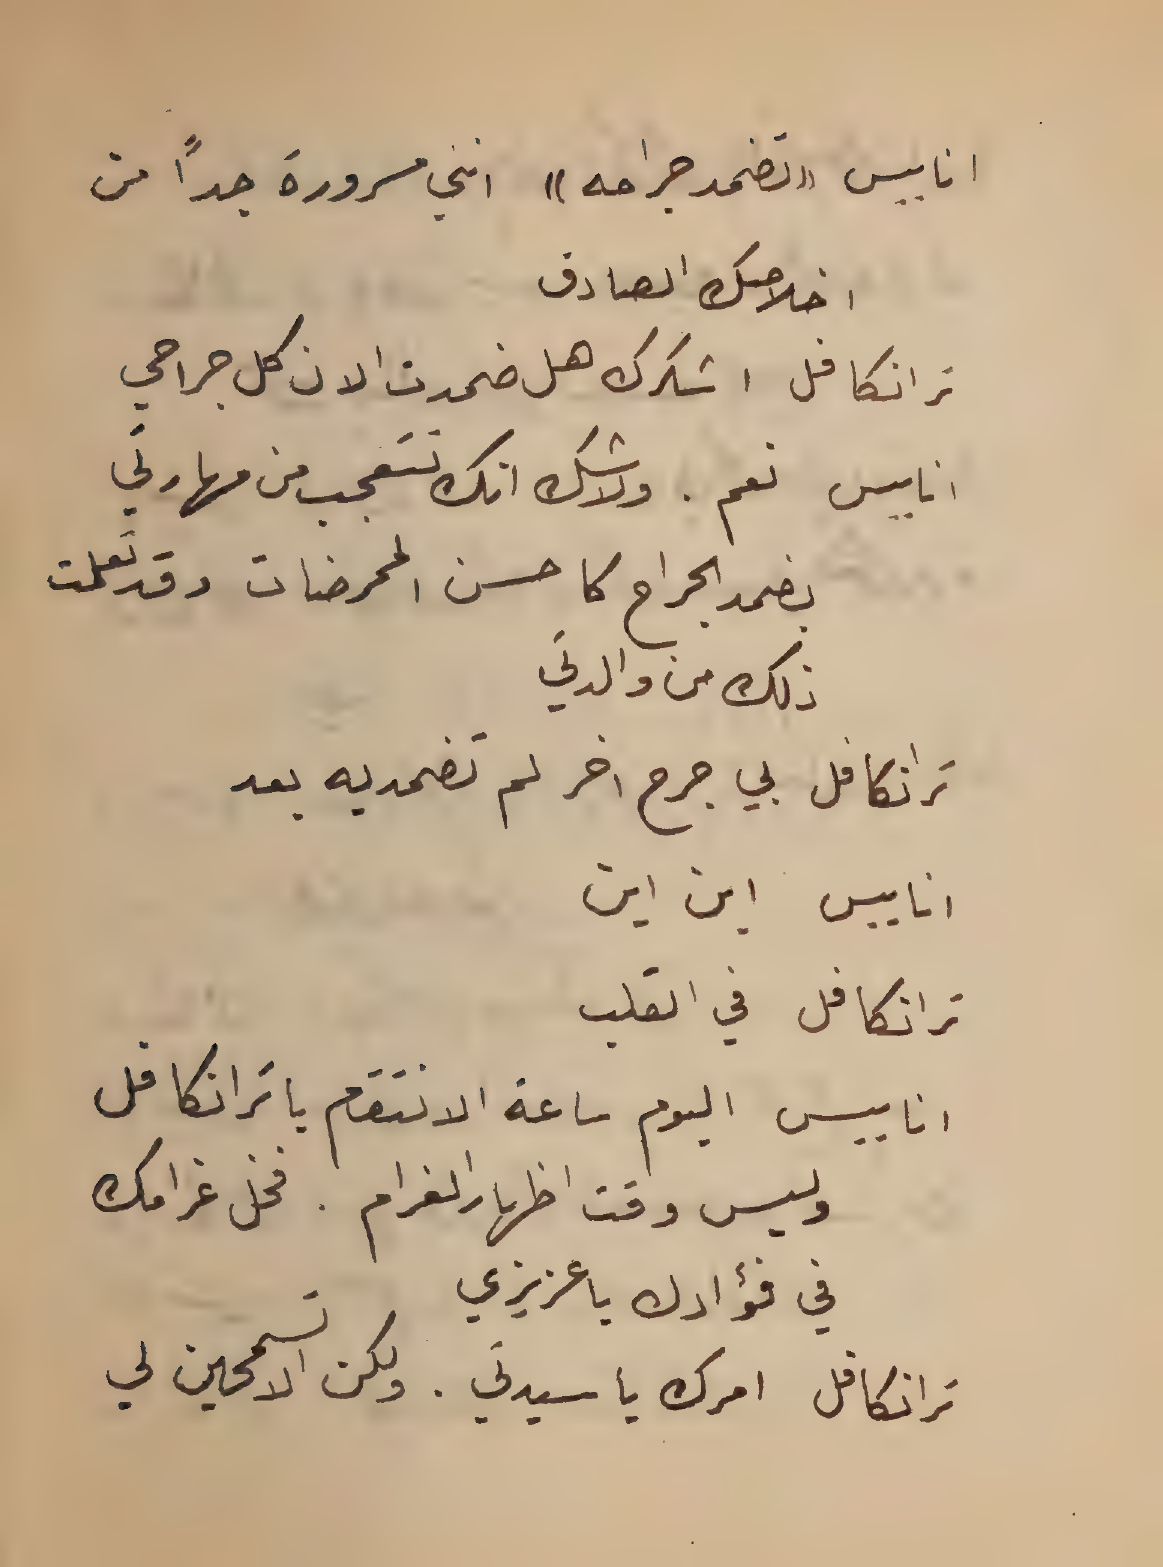 اناييس «تضمد جراحه» انني مسرورة جداً من
اخلاصك الصادق
ترانكافل اشكرك هل ضمدت الان كل جراحي
اناييس نعم . ولاشك انك تتعجب من مهارتي
بضمد الجراح كاحسن الممرضات وقد تعلمت
ذلك من والدتي
ترانكافل بي جرح اخر لم تضمديه بعد
اناييس اين اين
ترانكافل في القلب
اناييس اليوم ساعة الانتقام يا ترانكافل
وليس وقت اظهار الغرام . فخل غرامك
في فؤادك يا عزيزي
ترانكافل امرك يا سيدتي . ولكن الا تسمحين لي